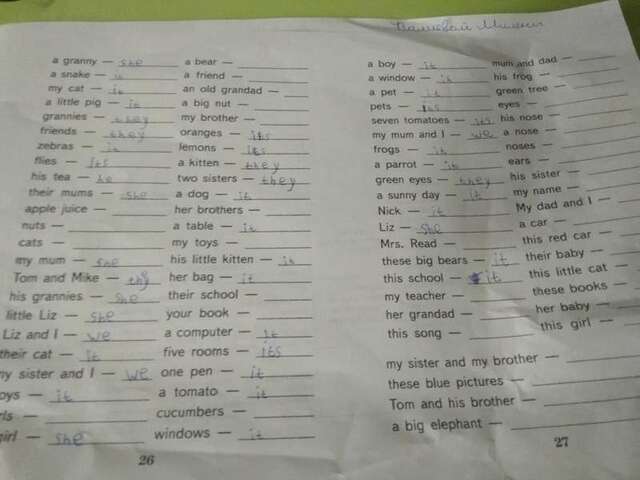 a granny — she a bear —
a snake — it a friend —
my cat — it an old grandad —
a little pig — it a big nut —
grannies — they my brother —
friends — they oranges — its
zebras — it lemons — its
flies — its a kitten — they
his tea — he two sisters — they
their mums — she a dog — it
apple juice — her brothers —
nuts — a table — it
cats — my toys —
my mum — she his little kitten — it
Tom and Mike — they her bag — it
his grannies — she their school —
little Liz — she your book —
Liz and I — we a computer — it
their cat — it five rooms — its
my sister and I — we one pen — it
oys — it a tomato — it
rls — cucumbers —
girl — she windows — it
26
a boy — it mum and dad —
a window — it his frog —
a pet — it green tree —
pets — its eyes —
seven tomatoes — its his nose —
my mum and I — we a nose —
frogs — it noses —
a parrot — it ears —
green eyes — they his sister —
a sunny day — it my name —
Nick — it My dad and I —
Liz — she a car —
Mrs. Read — this red car —
these big bears — it their baby —
this school — it this little cat —
my teacher — these books —
her grandad — her baby —
this song — this girl —
my sister and my brother —
these blue pictures —
Tom and his brother —
a big elephant —
27